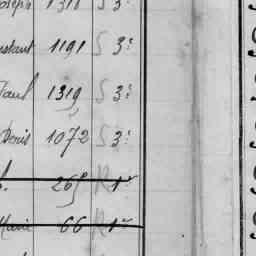 Joseph 1318 S 3e
nstant 1191 S 3e
Paul 1319 S 3e
Denis 1072 S 3e
265 R 1er
Marie 66 R 1er